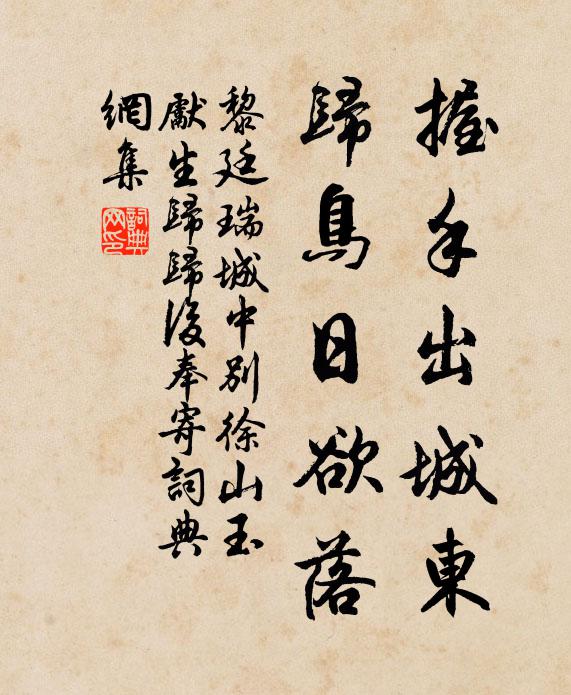 握手出城東
歸鳥日欲落
黎廷瑞城中別徐山玉
獻生歸歸後奉寄詞典
網集
詞典网印